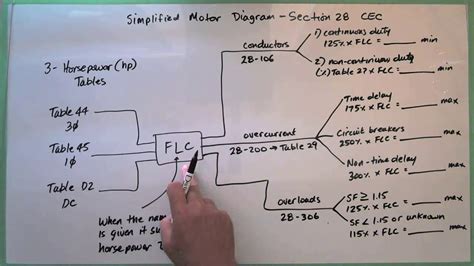 Simplified Motor Diagram - Section 28 CEC
3 - Horsepower (hp)
Tables
Table 44
3Ø
Table 45
1Ø
Table D2
DC
FLC
When the name
is given it su
horsepower
conductors
28-106
1) continuous duty
125% x FLC = min
2) non-continuous duty
(x) Table 27 x FLC = min
overcurrent
28-200 → Table 29
Time delay
175% x FLC = max
Circuit breakers
250% x FLC = max
Non-time delay
300% x FLC = max
overloads
28-306
SF ≥ 1.15
125% x FLC = max
SF < 1.15 or unknown
115% x FLC = max